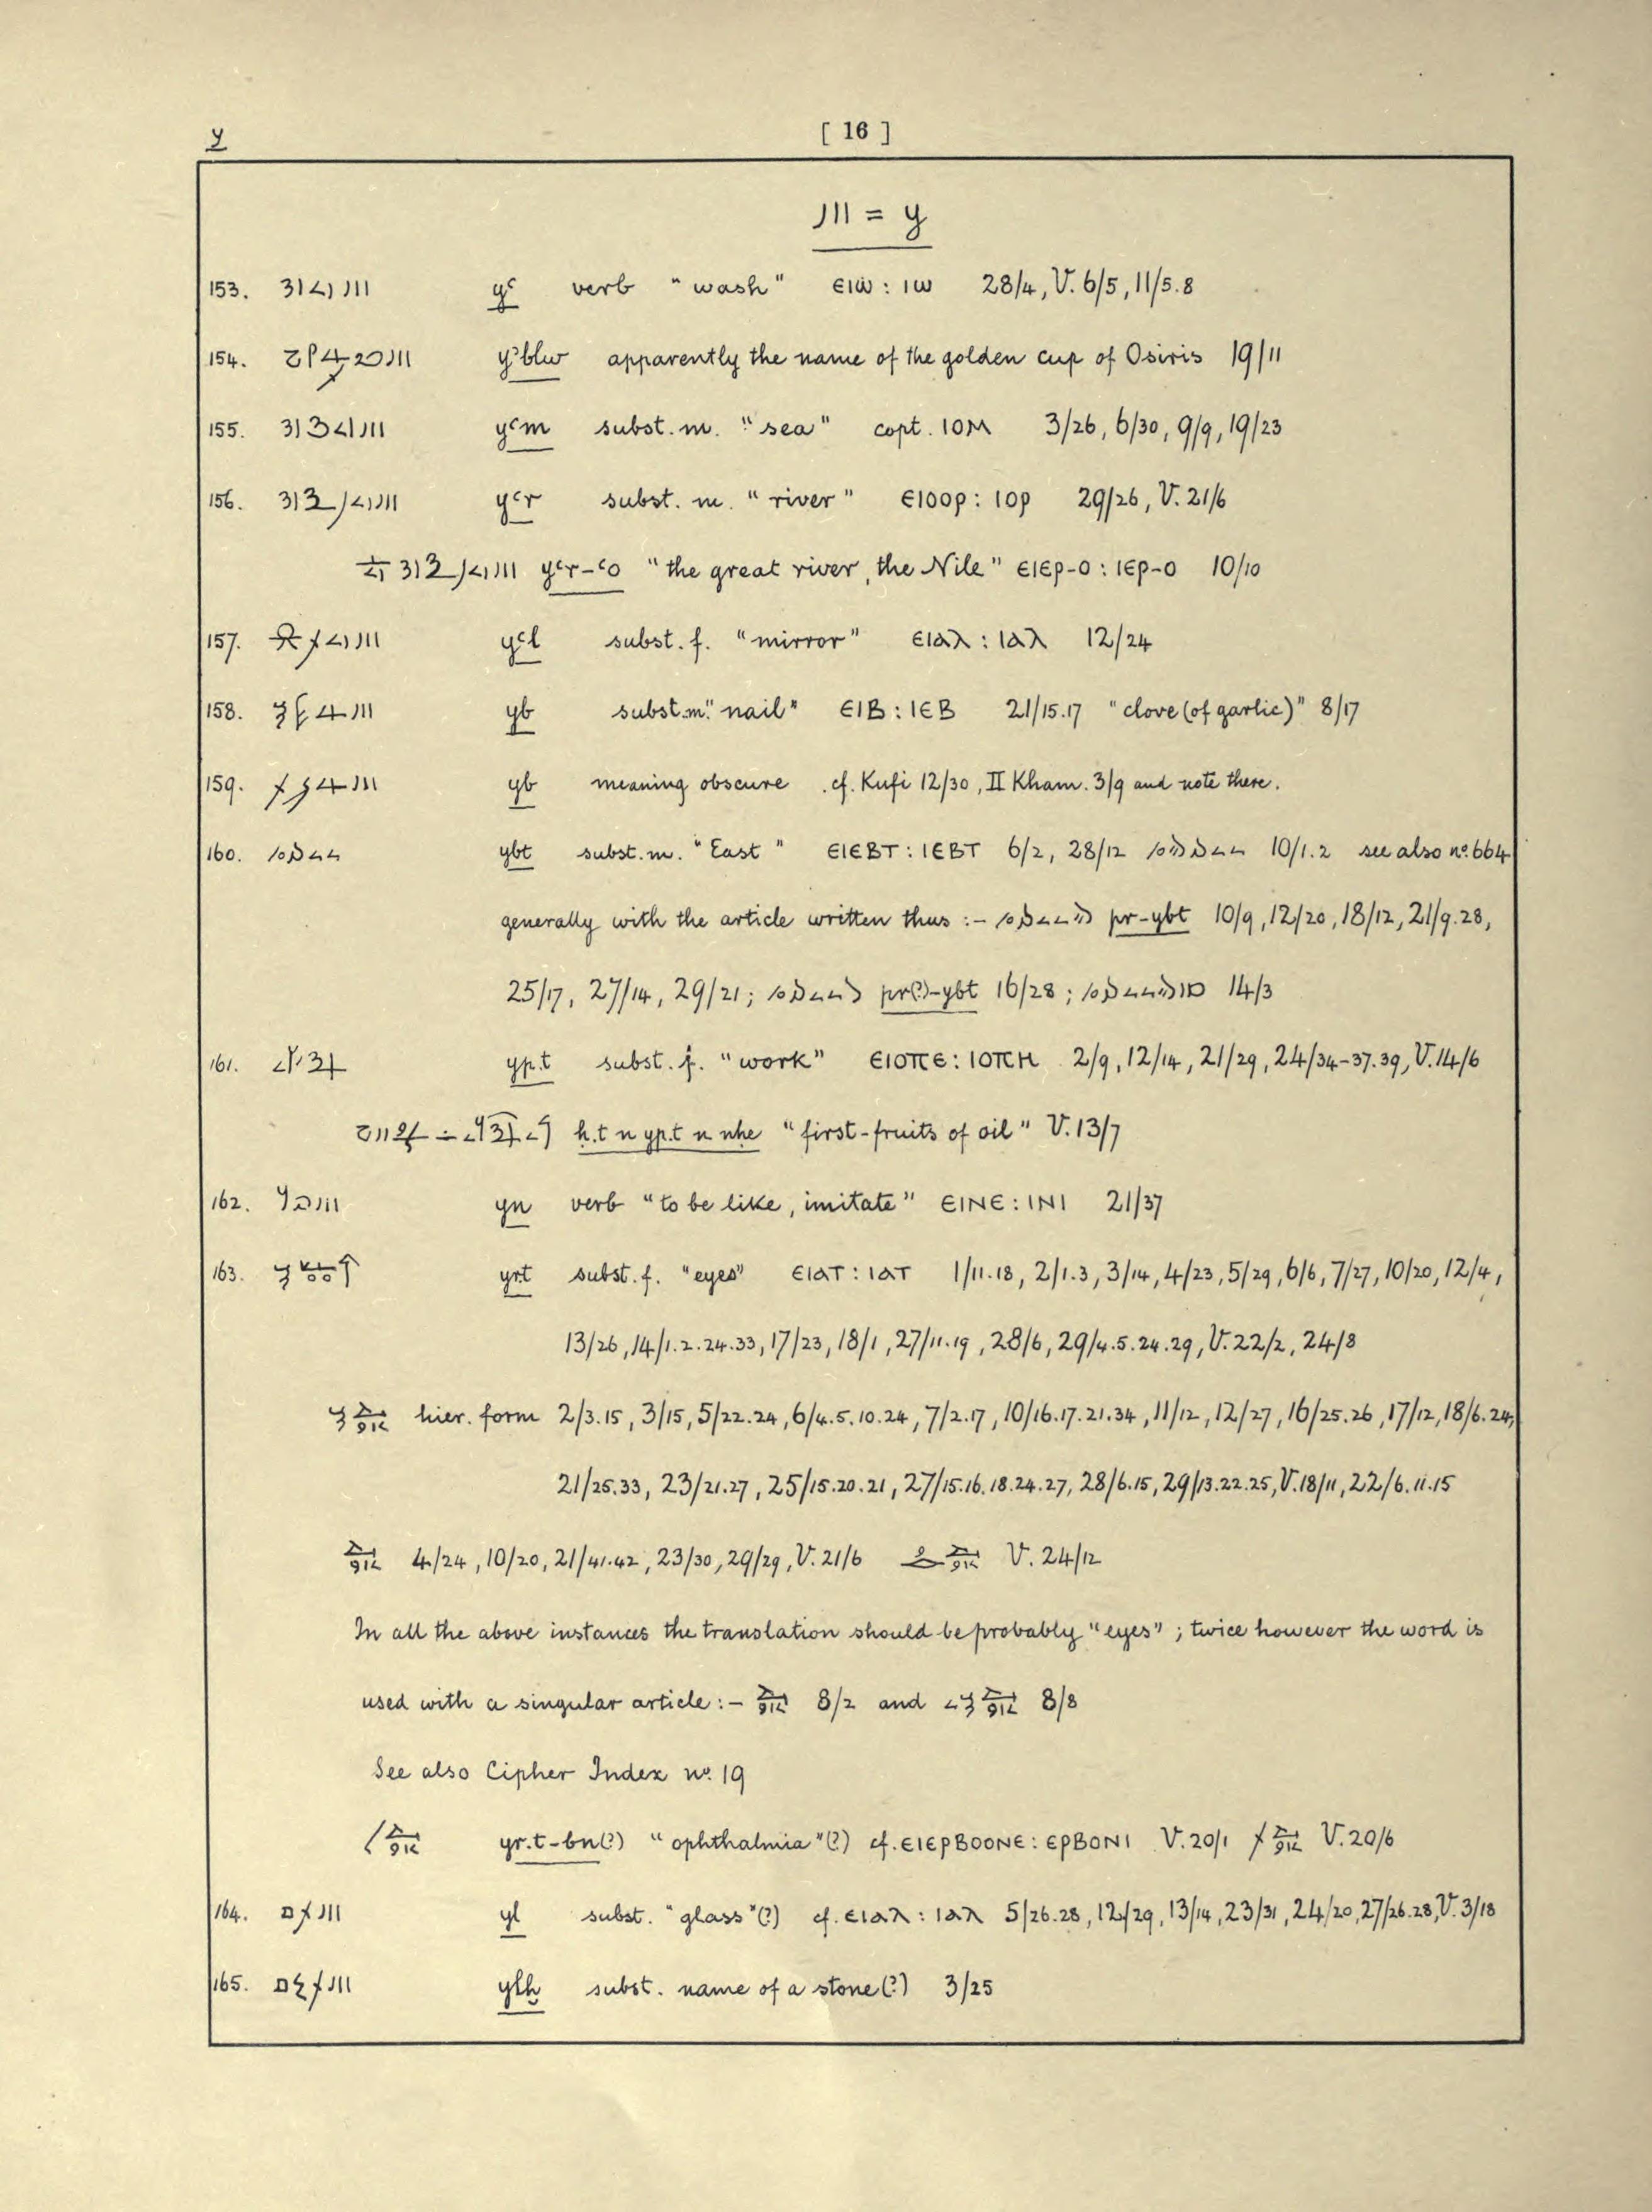 y [ 16 ]
= y
153. yꜥ verb "wash" ⲉⲓⲱ : ⲓⲱ 28/4, V. 6/5, 11/5.8
154. yꜣblw apparently the name of the golden cup of Osiris 19/11
155. yꜥm subst. m. "sea" copt. ⲓⲟⲙ 3/26, 6/30, 9/9, 19/23
156. yꜥr subst. m. "river" ⲉⲓⲟⲟⲣ : ⲓⲟⲣ 29/26, V. 21/6
yꜥr-ꜥo "the great river, the Nile" ⲉⲓⲉⲣ-ⲟ : ⲓⲉⲣ-ⲟ 10/10
157. yꜥl subst. f. "mirror" ⲉⲓⲁⲗ : ⲓⲁⲗ 12/24
158. yb subst. m. "nail" ⲉⲓⲃ : ⲓⲉⲃ 21/15.17 "clove (of garlic)" 8/17
159. yb meaning obscure . cf. Kufi 12/30, II Kham. 3/9 and note there.
160. ybt subst. m. "East" ⲉⲓⲉⲃⲧ : ⲓⲉⲃⲧ 6/2, 28/12 10/1.2 see also nº. 664
generally with the article written thus :- pr-ybt 10/9, 12/20, 18/12, 21/9.28,
25/17, 27/14, 29/21; pr(?)-ybt 16/28; 14/3
161. yp.t subst. f. "work" ⲉⲓⲟⲡⲉ : ⲓⲟⲡⲏ 2/9, 12/14, 21/29, 24/34-37.39, V. 14/6
ḥ.t n yp.t n nḥe "first-fruits of oil" V. 13/7
162. yn verb "to be like, imitate" ⲉⲓⲛⲉ : ⲓⲛⲓ 21/37
163. yr.t subst. f. "eyes" ⲉⲓⲁⲧ : ⲓⲁⲧ 1/11.18, 2/1.3, 3/14, 4/23, 5/29, 6/6, 7/27, 10/20, 12/4,
13/26, 14/1.2.24.33, 17/23, 18/1, 27/11.19, 28/6, 29/4.5.24.29, V. 22/2, 24/8
hier. form 2/3.15, 3/15, 5/22.24, 6/4.5.10.24, 7/2.17, 10/16.17.21.34, 11/12, 12/27, 16/25.26, 17/12, 18/6.24,
21/25.33, 23/21.27, 25/15.20.21, 27/15.16.18.24.27, 28/6.15, 29/13.22.25, V. 18/11, 22/6.11.15
4/24, 10/20, 21/41.42, 23/30, 29/29, V. 21/6 V. 24/12
In all the above instances the translation should be probably "eyes"; twice however the word is
used with a singular article :- 8/2 and 8/8
See also Cipher Index nº. 19
yr.t-bn(?) "ophthalmia"(?) cf. ⲉⲓⲉⲣⲃⲟⲟⲛⲉ : ⲉⲣⲃⲟⲛⲓ V. 20/1 V. 20/6
164. yl subst. "glass"(?) cf. ⲉⲓⲁⲗ : ⲓⲁⲗ 5/26.28, 12/29, 13/14, 23/31, 24/20, 27/26.28, V. 3/18
165. ylḫ subst. name of a stone(?) 3/25